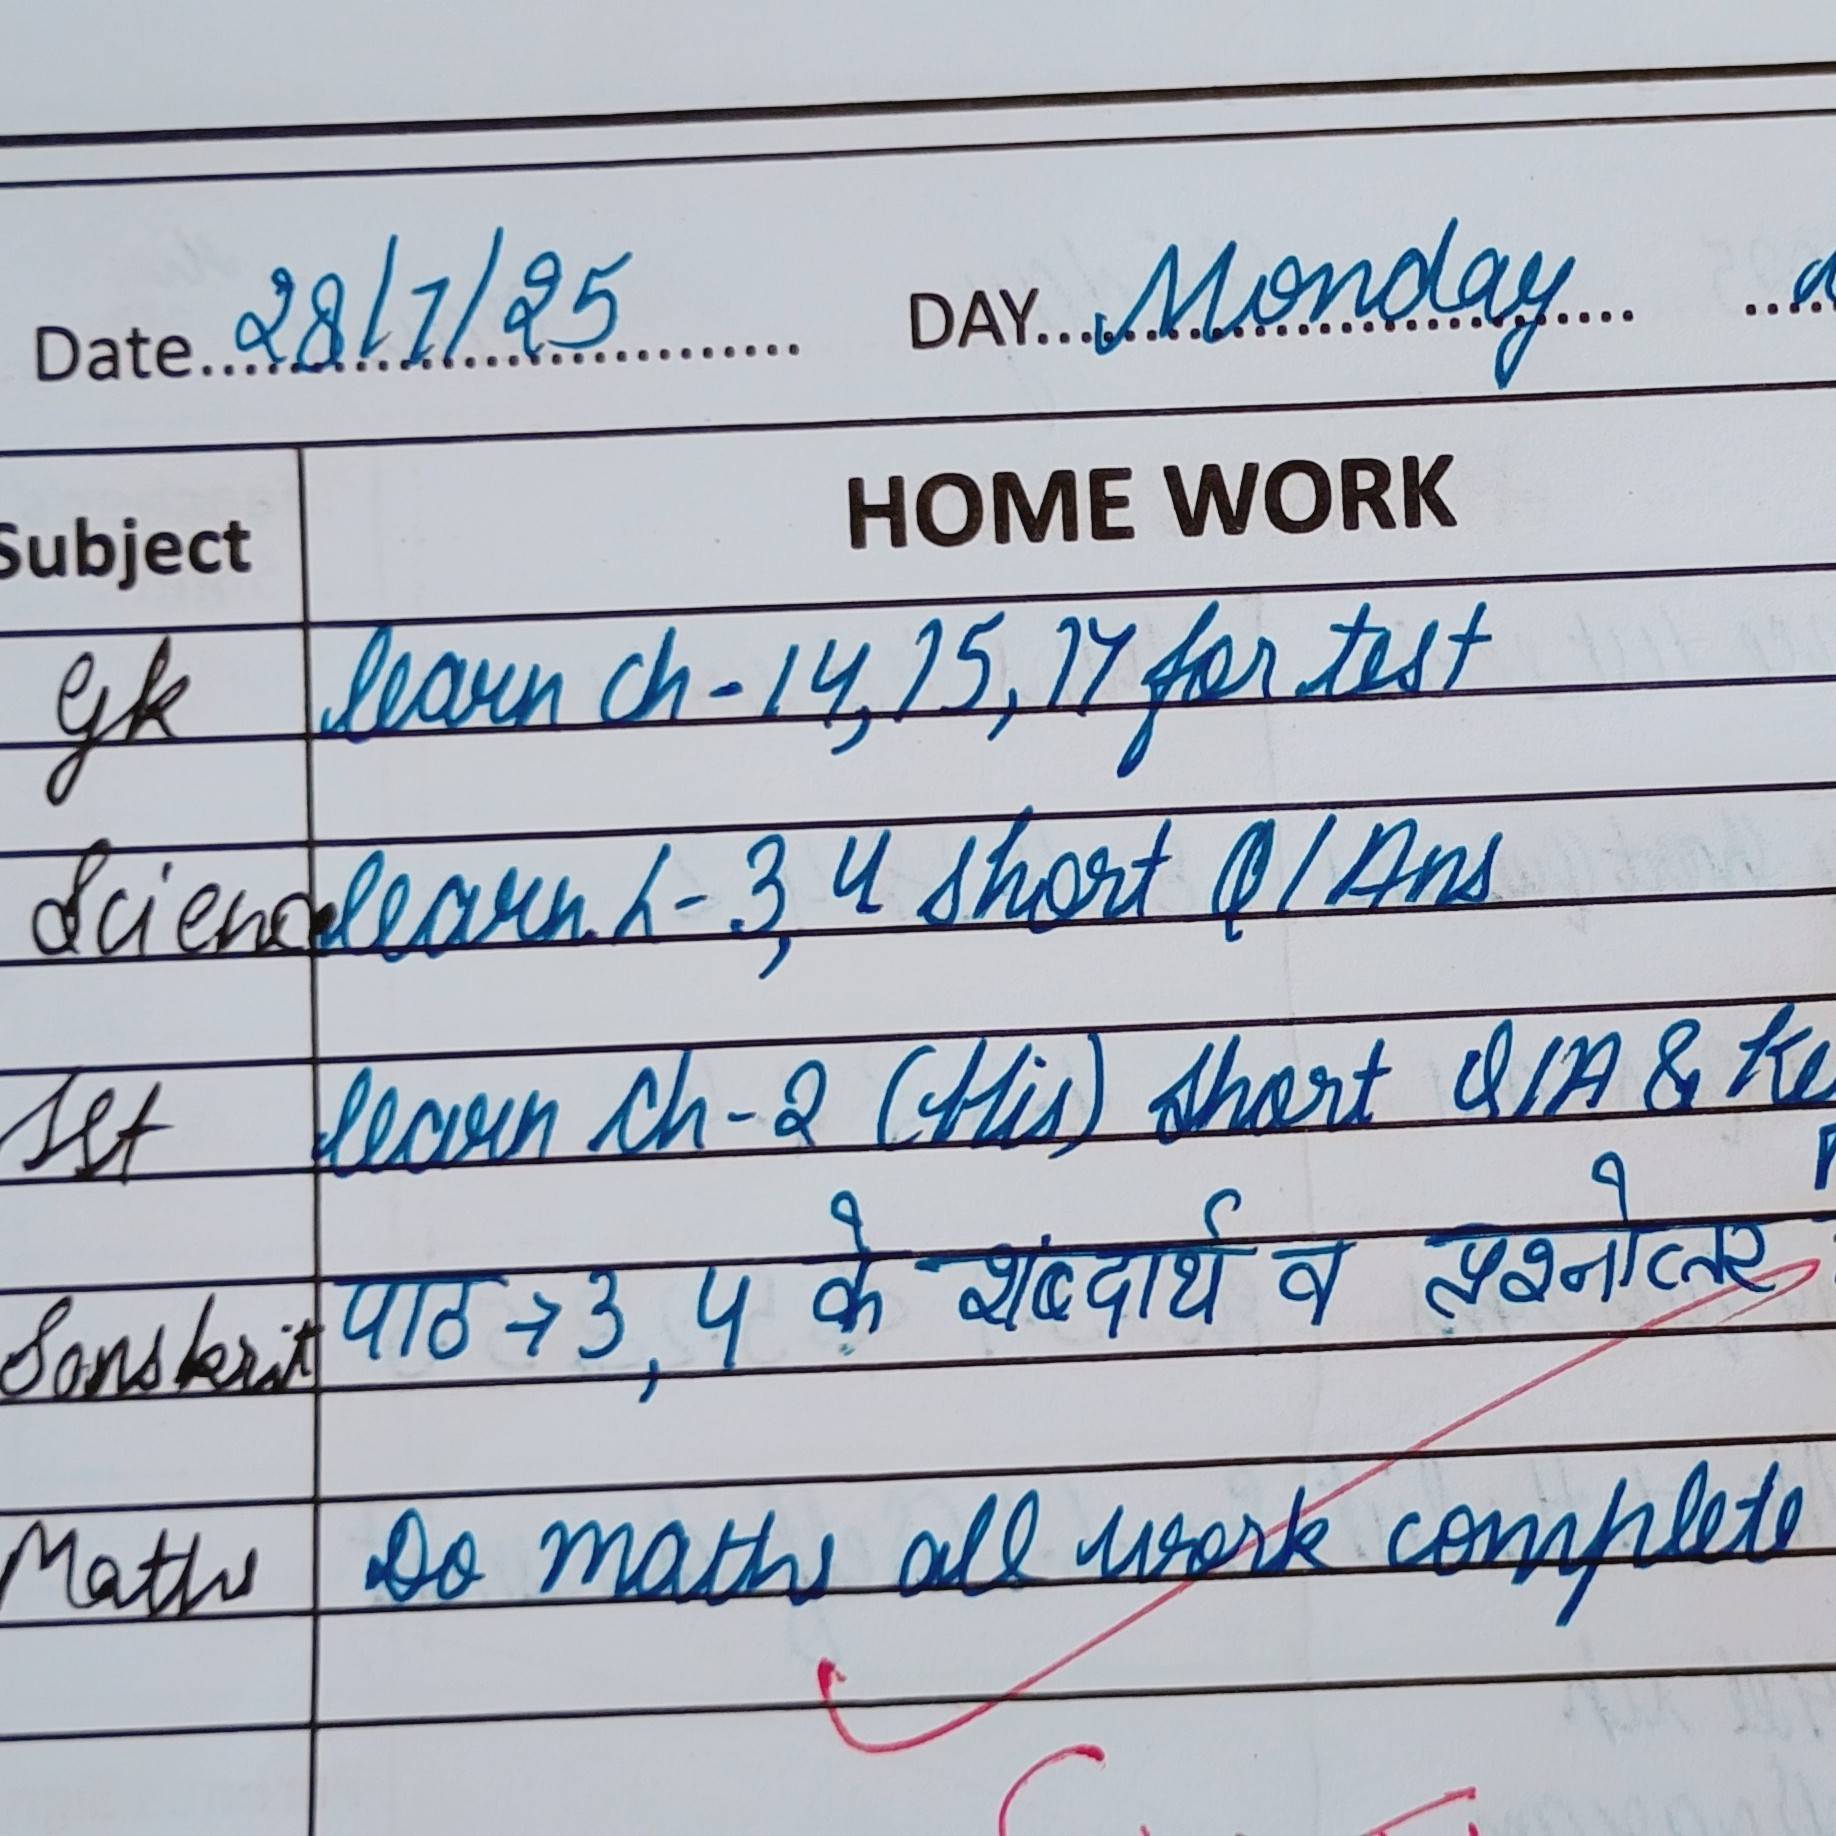 Date 28/7/25 DAY Monday
Subject HOME WORK
Gk learn ch - 14, 15, 17 for test
Science learn L - 3, 4 short Q/Ans
SSt learn ch - 2 (His) short Q/A & Ke
Sanskrit पाठ → 3, 4 के शब्दार्थ व प्रश्नोत्तर
Maths Do maths all work complete